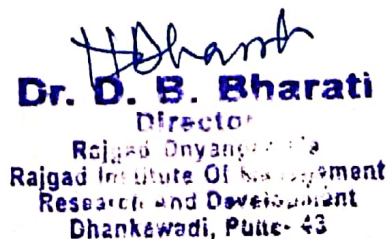 Dr. D. B. Bharati
Director
Rajgad
Rajgad Institute Of Management
Research And Development
Dhankawadi, Pune- 43